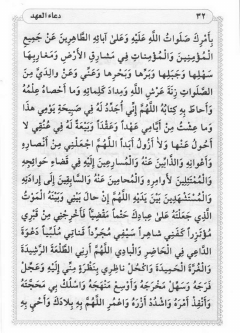 ٣٢
دعاء العهد
بِأَمْرِكَ صَلَوَاتُ اللَّهِ عَلَيْهِ وَعَلَىٰ آبَائِهِ الطَّاهِرِينَ عَنْ جَمِيعِ
الْمُؤْمِنِينَ وَالْمُؤْمِنَاتِ فِي مَشَارِقِ الْأَرْضِ وَمَغَارِبِهَا
سَهْلِهَا وَجَبَلِهَا وَبَرِّهَا وَبَحْرِهَا وَعَنِّي وَعَنْ وَالِدَيَّ مِنَ
الصَّلَوَاتِ زِنَةَ عَرْشِ اللَّهِ وَمِدَادَ كَلِمَاتِهِ وَمَا أَحْصَاهُ عِلْمُهُ
وَأَحَاطَ بِهِ كِتَابُهُ اللَّهُمَّ إِنِّي أُجَدِّدُ لَهُ فِي صَبِيحَةِ يَوْمِي هَذَا
وَمَا عِشْتُ مِنْ أَيَّامِي عَهْداً وَعَقْداً وَبَيْعَةً لَهُ فِي عُنُقِي لَا
أَحُولُ عَنْهَا وَلَا أَزُولُ أَبَداً اللَّهُمَّ اجْعَلْنِي مِنْ أَنْصَارِهِ
وَأَعْوَانِهِ وَالذَّابِّينَ عَنْهُ وَالْمُسَارِعِينَ إِلَيْهِ فِي قَضَاءِ حَوَائِجِهِ
وَالْمُمْتَثِلِينَ لِأَوَامِرِهِ وَالْمُحَامِينَ عَنْهُ وَالسَّابِقِينَ إِلَىٰ إِرَادَتِهِ
وَالْمُسْتَشْهَدِينَ بَيْنَ يَدَيْهِ اللَّهُمَّ إِنْ حَالَ بَيْنِي وَبَيْنَهُ الْمَوْتُ
الَّذِي جَعَلْتَهُ عَلَىٰ عِبَادِكَ حَتْماً مَقْضِيّاً فَأَخْرِجْنِي مِنْ قَبْرِي
مُؤْتَزِراً كَفَنِي شَاهِراً سَيْفِي مُجَرِّداً قَنَاتِي مُلَبِّياً دَعْوَةَ
الدَّاعِي فِي الْحَاضِرِ وَالْبَادِي اللَّهُمَّ أَرِنِي الطَّلْعَةَ الرَّشِيدَةَ
وَالْغُرَّةَ الْحَمِيدَةَ وَاكْحُلْ نَاظِرِي بِنَظْرَةٍ مِنِّي إِلَيْهِ وَعَجِّلْ
فَرَجَهُ وَسَهِّلْ مَخْرَجَهُ وَأَوْسِعْ مَنْهَجَهُ وَاسْلُكْ بِي مَحَجَّتَهُ
وَأَنْفِذْ أَمْرَهُ وَاشْدُدْ أَزْرَهُ وَاعْمُرِ اللَّهُمَّ بِهِ بِلَادَكَ وَأَحْيِ بِهِ